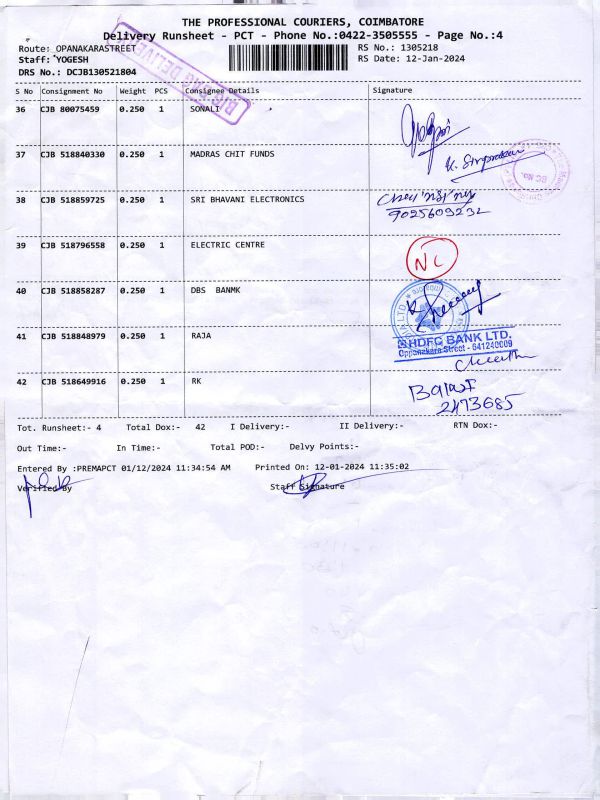 THE PROFESSIONAL COURIERS, COIMBATORE
Delivery Runsheet - PCT - Phone No.:0422-3505555 - Page No.:4
Route: OPANAKARASTREET RS No.: 1305218
Staff: YOGESH RS Date: 12-Jan-2024
DRS No.: DCJB130521804
S No Consignment No Weight PCS Consignee Details Signature
36 CJB 80075459 0.250 1 SONALI
37 CJB 518840330 0.250 1 MADRAS CHIT FUNDS
38 CJB 518859725 0.250 1 SRI BHAVANI ELECTRONICS
9025609232
39 CJB 518796558 0.250 1 ELECTRIC CENTRE
NC
40 CJB 518858287 0.250 1 DBS BANMK
41 CJB 518848979 0.250 1 RAJA
HDFC BANK LTD.
Oppanakara Street - 641240009
42 CJB 518649916 0.250 1 RK
Balaji
2473685
Tot. Runsheet:- 4 Total Dox:- 42 I Delivery:- II Delivery:- RTN Dox:-
Out Time:- In Time:- Total POD:- Delvy Points:-
Entered By :PREMAPCT 01/12/2024 11:34:54 AM Printed On: 12-01-2024 11:35:02
Verified By Staff Signature